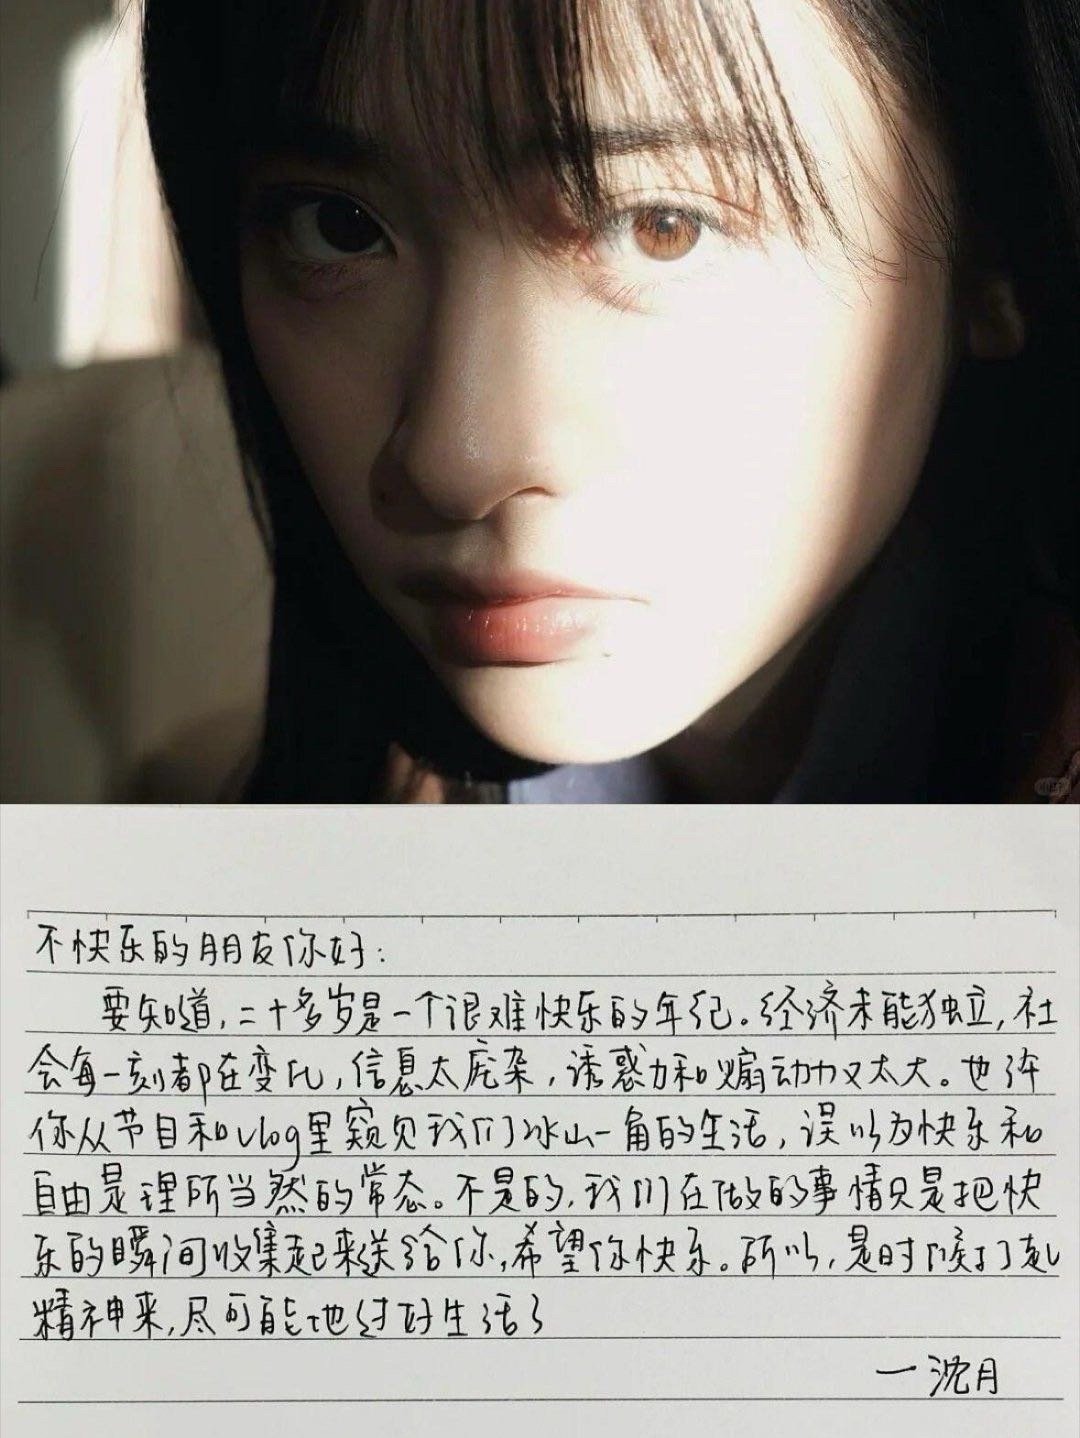 不快乐的朋友你好：
要知道，二十多岁是一个很难快乐的年纪。经济未能独立，社
会每一刻都在变化，信息太庞杂，诱惑力和煽动力又太大。也许
你从节目和vlog里窥见我们冰山一角的生活，误以为快乐和
自由是理所当然的常态。不是的，我们在做的事情只是把快
乐的瞬间收集起来送给你，希望你快乐。所以，是时候打起
精神来，尽可能地过好生活了
—沈月